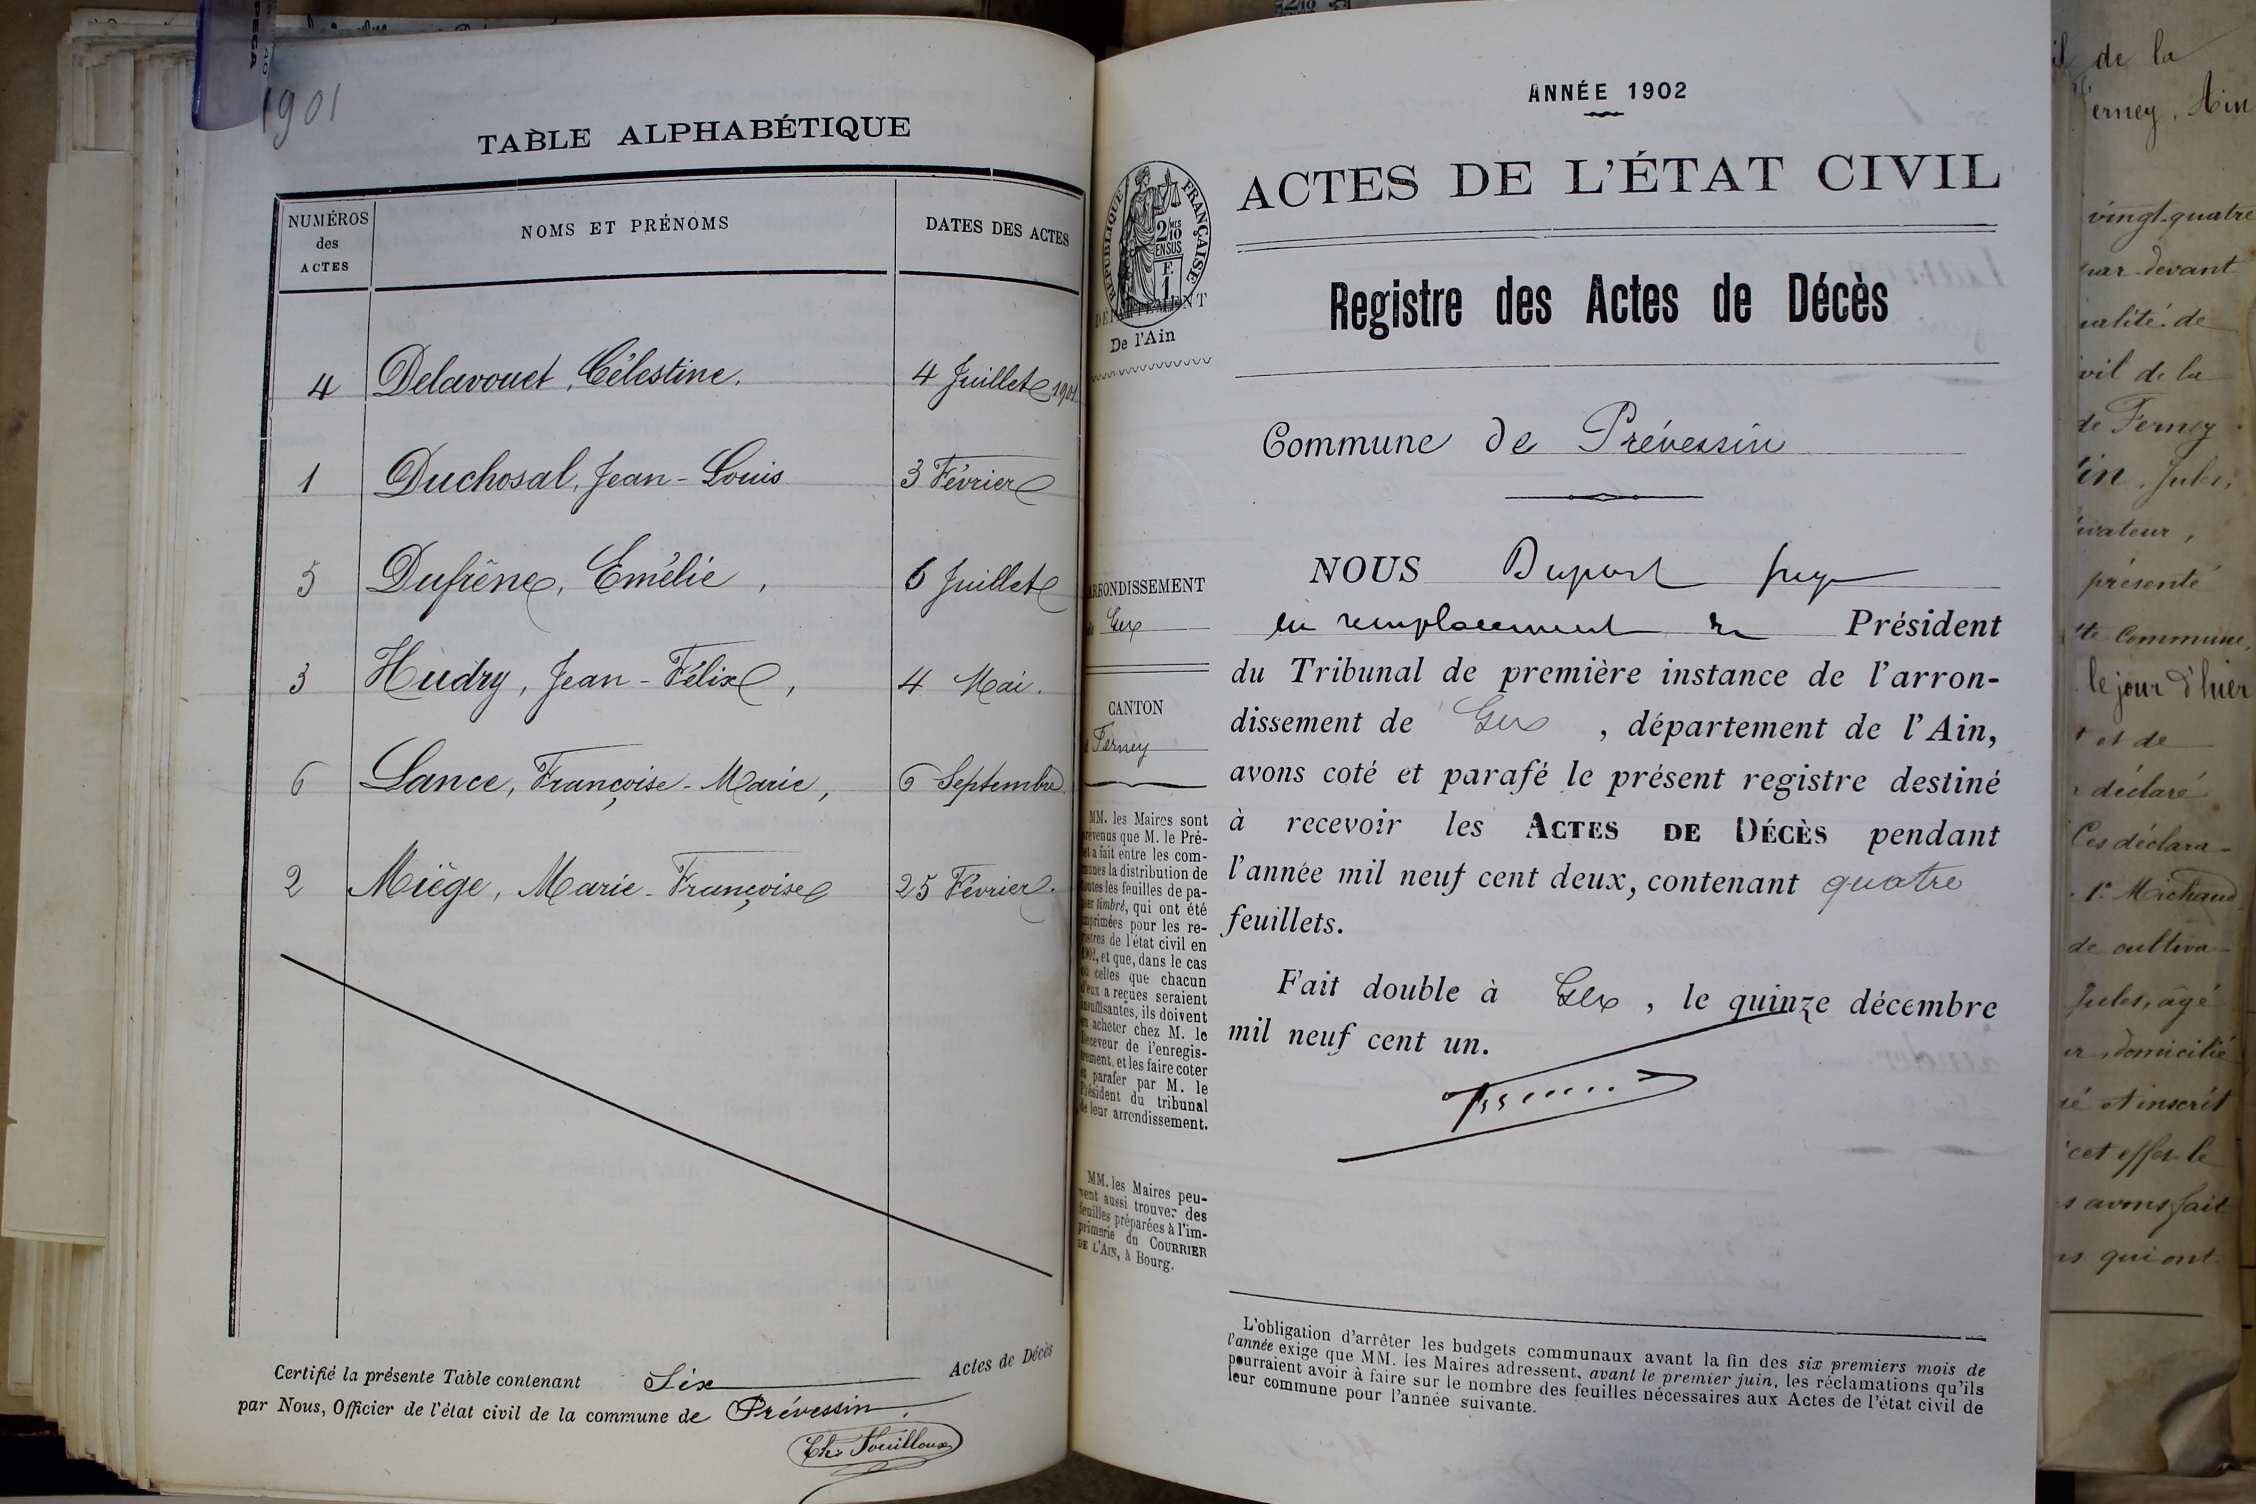 1901
TABLE ALPHABÉTIQUE
NUMÉROS des ACTES
NOMS ET PRÉNOMS
DATES DES ACTES
4 Delavouet, Célestine. 4 Juillet 1901
1 Duchosal, Jean-Louis 3 Février
5 Dufrêne, Emélie, 6 Juillet
3 Hudry, Jean-Félix, 4 Mai.
6 Lance, Françoise-Marie, 6 Septembre
2 Miège, Marie-Françoise 25 Février.
Certifié la présente Table contenant Six Actes de Décès
par Nous, Officier de l'état civil de la commune de Prévessin.
Ch. Fouilloux
ANNÉE 1902
RÉPUBLIQUE FRANÇAISE
2/10 EN SUS
F. 1
DÉPARTEMENT
De l'Ain
ACTES DE L'ÉTAT CIVIL
Registre des Actes de Décès
Commune de Prévessin
ARRONDISSEMENT
de Gex
CANTON
Ferney
MM. les Maires sont
prévenus que M. le Pré-
fet a fait entre les com-
munes la distribution de
toutes les feuilles de pa-
pier timbré, qui ont été
imprimées pour les re-
gistres de l'état civil en
1902, et que, dans le cas
où celles que chacun
d'eux a reçues seraient
insuffisantes, ils doivent
en acheter chez M. le
Receveur de l'enregis-
trement, et les faire coter
et parafer par M. le
Président du tribunal
de leur arrondissement.
MM. les Maires peu-
vent aussi trouver des
feuilles préparées à l'im-
primerie du COURRIER
DE L'AIN, à Bourg.
NOUS Duport juge
en remplacement du Président
du Tribunal de première instance de l'arron-
dissement de Gex , département de l'Ain,
avons coté et parafé le présent registre destiné
à recevoir les ACTES DE DÉCÈS pendant
l'année mil neuf cent deux, contenant quatre
feuillets.
Fait double à Gex , le quinze décembre
mil neuf cent un.
L'obligation d'arrêter les budgets communaux avant la fin des six premiers mois de
l'année exige que MM. les Maires adressent, avant le premier juin, les réclamations qu'ils
pourraient avoir à faire sur le nombre des feuilles nécessaires aux Actes de l'état civil de
leur commune pour l'année suivante.
de la
erney, Ain
vingt-quatre
par-devant
ualité de
vil de la
de Ferney
in, Jules,
ivateur,
présenté
te Commune,
le jour d'hier
t et de
déclaré
Ces déclara-
1° Michaud
de cultiva-
Jules, âgé
domicilié
é et inscrit
cet effet le
s avons fait
s qui ont